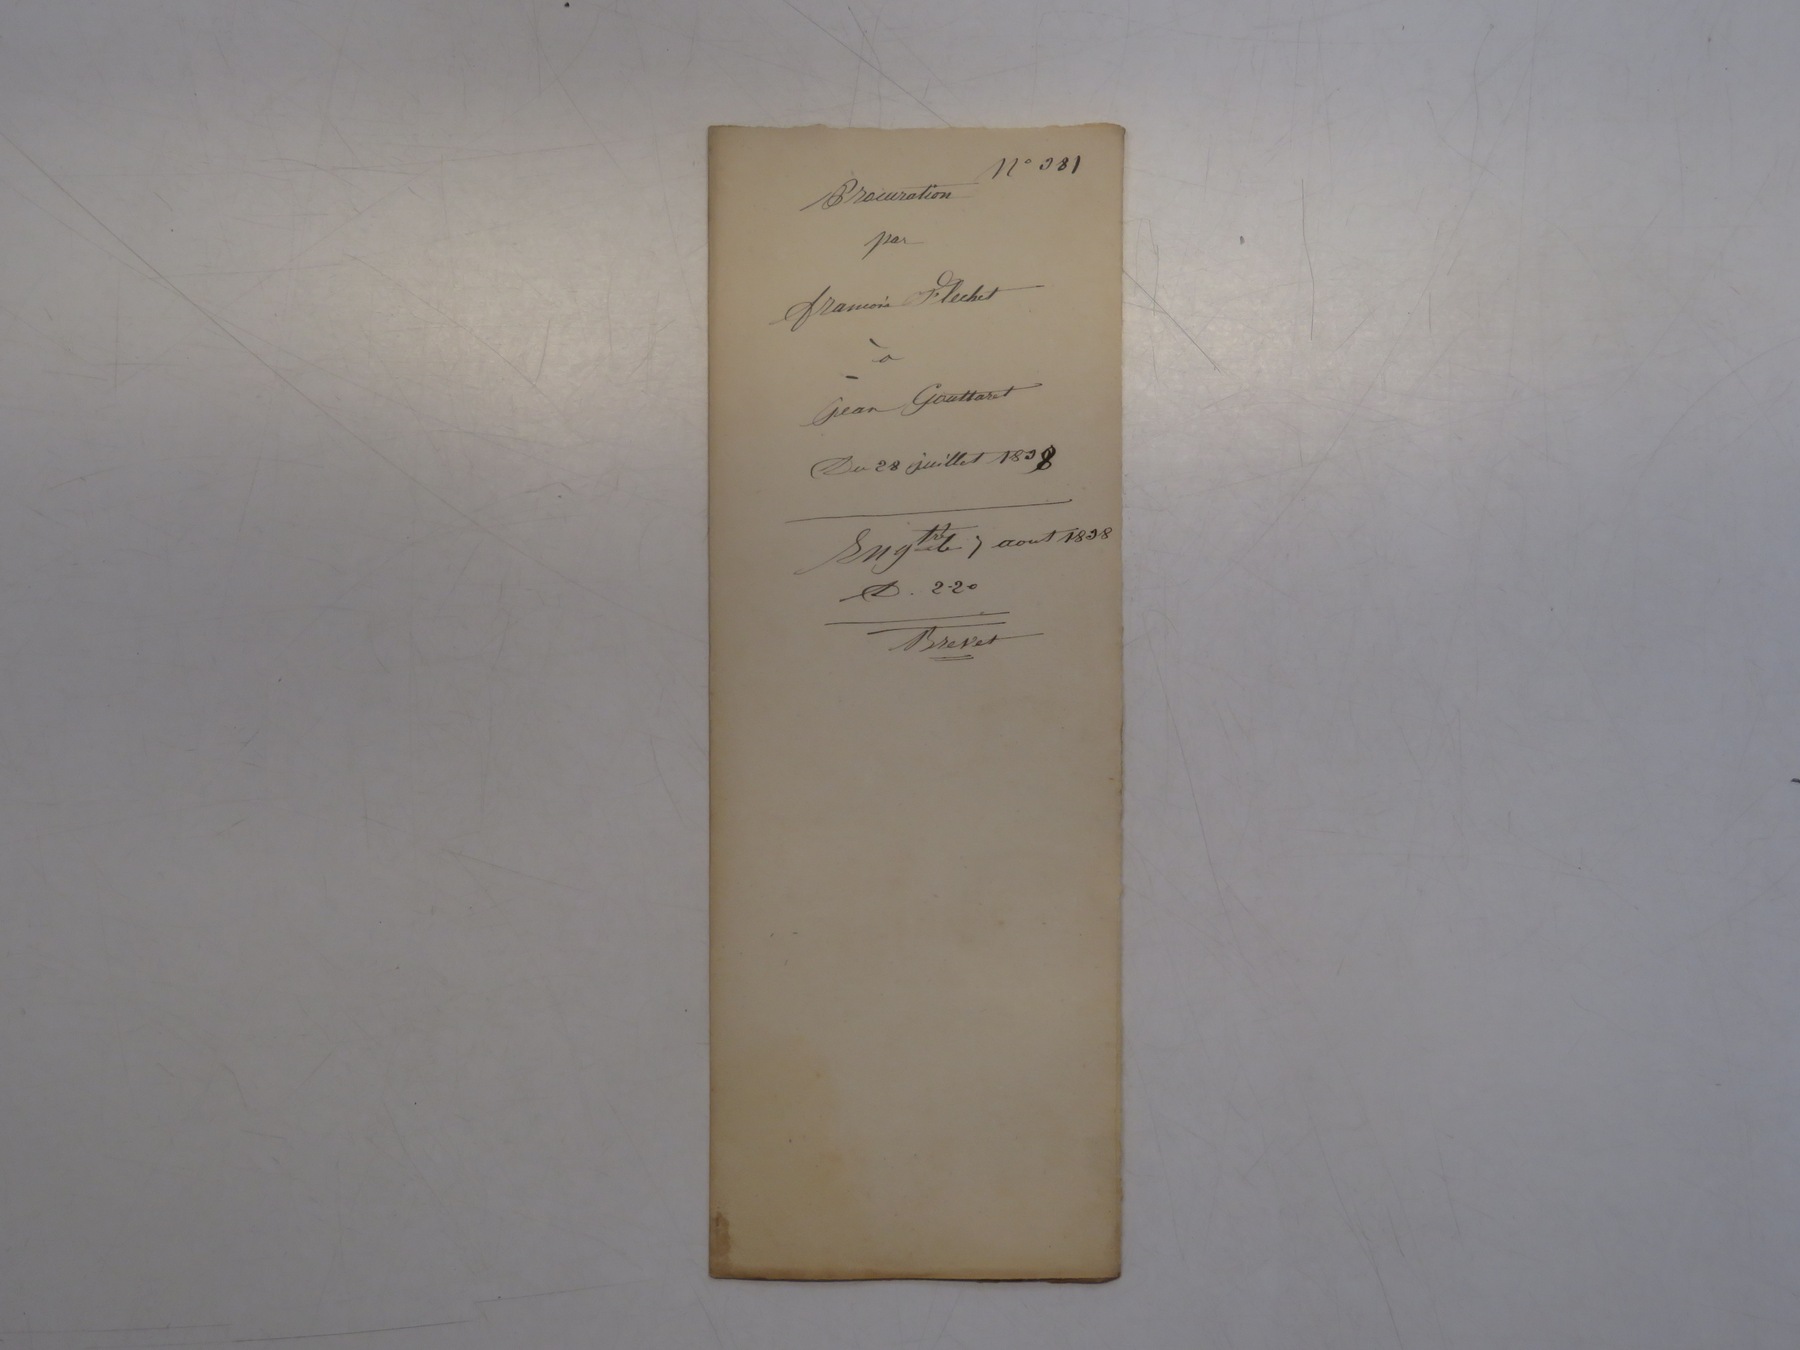 N° 381
Procuration
par
francois Flechet
à
jean Gouttaret
Du 28 juillet 1838
Engtré le 7 aout 1838
D. 2-20
Brevet